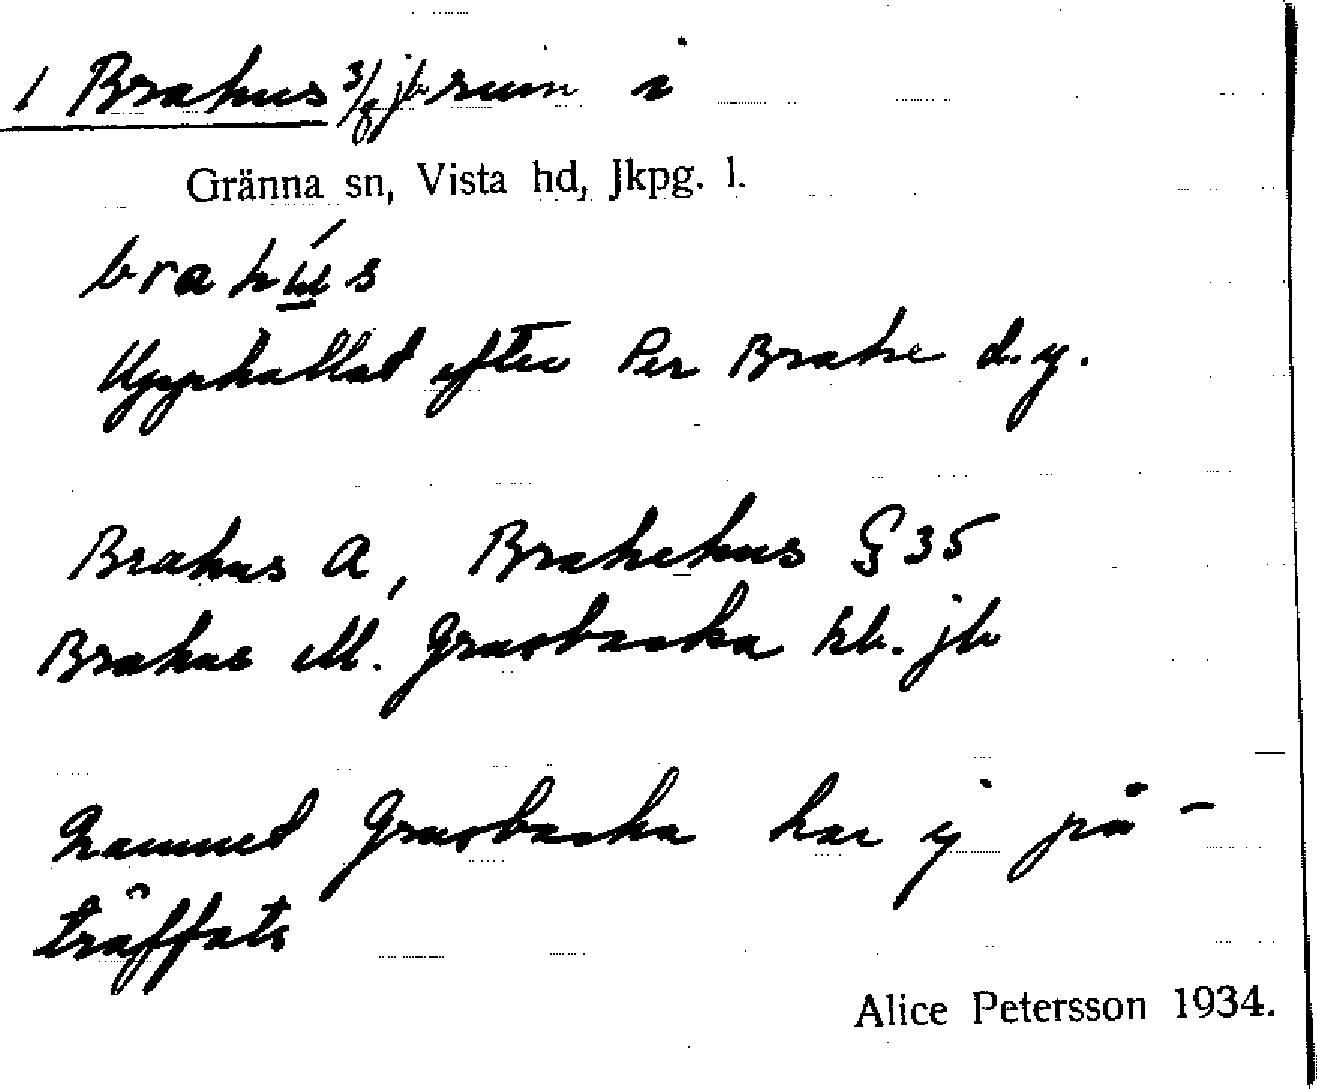 1 Brahus 3/8 jb ruin i
Gränna sn, Vista hd, Jkpg. l.
brahús
Uppkallad efter Per Brahe d.y.
Brahus A, Brahehus G 35
Brahus el. Grusbacka hb. jb
Namnet Grusbacka har ej på-
träffats
Alice Petersson 1934.